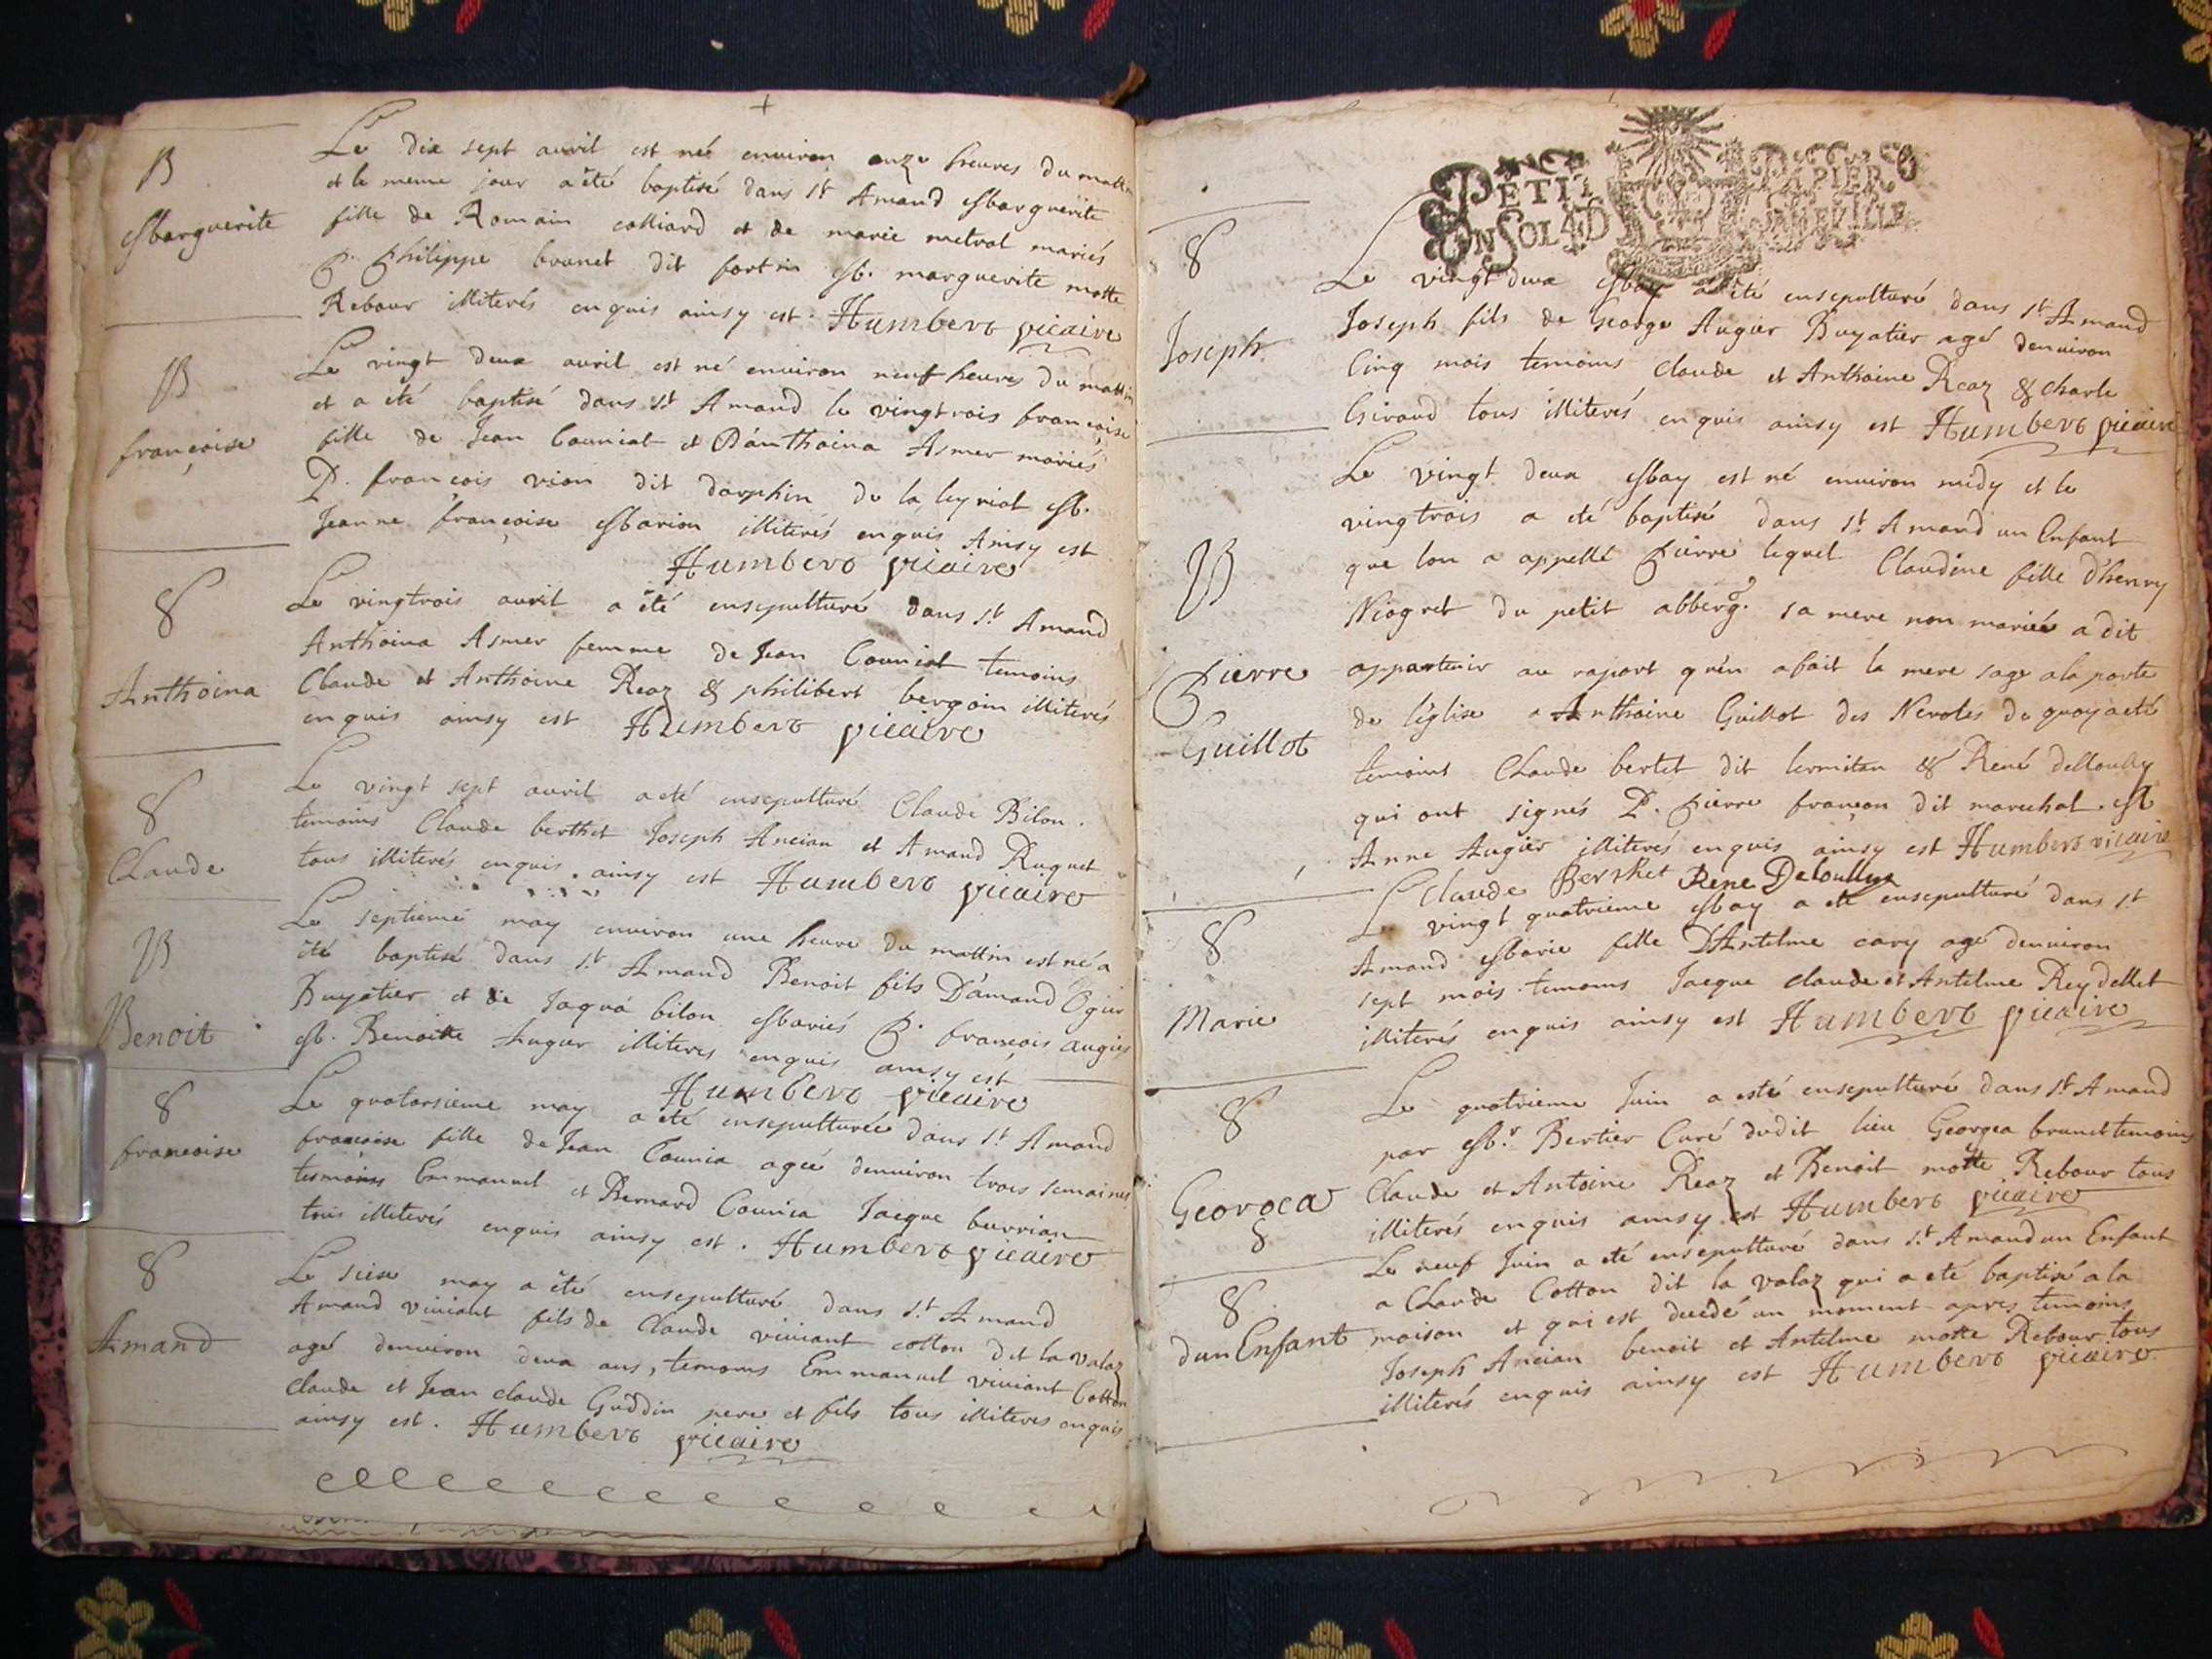 B
Marguerite
Le dix sept avril est neé environ onze heures du mattin
et le meme jour a été baptisé dans st Amand Marguerite
fille de Romain colliard et de marie metral mariés
P. Philippe brunet dit fortin M. marguerite motte
Rebour illiterés enquis ainsy est. Humbert vicaire
B
françoise
Le vingt deux avril est né environ neuf heures du mattin
et a été baptisé dans st Amand le vingtrois françoise
fille de Jean Couniat et D'anthoina Asmer mariés
P. françois vion dit dauphin de la leyriat M.
Jeanne françoise Marion illiterés enquis Ainsy est
Humbert vicaire
S
Anthoina
Le vingtrois avril a été ensepulturé dans st Amand
Anthoina Asmer femme de Jean Couniat temoins
Claude et Anthoine Reaz & philibert bergoin illiterés
enquis ainsy est Humbert vicaire
S
Claude
Le vingt sept avril a eté ensepulturé Claude Bilon.
temoins Claude berthet Joseph Ancian et Amand Ruquet
tous illiterés enquis ainsy est Humbert vicaire
B
Benoit
Le septieme may environ une heure du mattin est né a
été baptisé dans st Amand Benoit fils D'amand Ogier
Buyatier et de Jaqua bilon Mariés P. françois augier
M. Benoitte Augier illiteres enquis ainsy est
Humbert vicaire
S
françoise
Le quatorsieme may a été ensepulturée dans st Amand
françoise fille de Jean Counia ageé denviron trois semaines
temoins Emmanuel et Bernard Counia Jacque burrian
tous illiterés enquis ainsy est. Humbert vicaire
S
Amand
Le seise may a été ensepulturé dans st Amand
Amand viviant fils de Claude viviant cotton dit la valaz
agé denviron deux ans, temoins Emmanuel viviant Cotton
claude et Jean claude Guddin pere et fils tous illiteres enquis
ainsy est. Humbert vicaire
PETIT PAPIER
UN SOL 4 D
S
Joseph
Le vingt deux May a été ensepulturé dans st Amand
Joseph fils de George Augier Buyatier agé denviron
Cinq mois temoins Claude et Anthoine Reaz & charle
Giraud tous illiterés enquis ainsy est Humbert vicaire
B
Pierre
Guillot
Le vingt deux May est né environ midy et le
vingtrois a eté baptisé dans st Amand un Enfant
que lon a appellé Pierre lequel Claudine fille D'henry
Niogret du petit abberg. sa mere non mariée a dit
appartenir au raport qu'en a fait la mere sage a la porte
de l'église a Anthoine Guillot des Nerotes de quoy a eté
temoins Claude bertet dit lermitan & René delloully
qui ont signés P. Pierre françon dit marechal M
Anne Augier illiterés enquis ainsy est Humbert vicaire
Claude Berthet Rene Deloullys
S
Marie
Le vingt quatrieme May a eté ensepulturé dans st
Amand Marie fille D'Antelme cary agé denviron
sept mois temoins Jacque claude et Antelme Reydellet
illiterés enquis ainsy est Humbert vicaire
S
Georgea
Le quatrieme Juin a esté ensepulturé dans st Amand
par Mr Bertier Curé dudit lieu Georgea brunet temoins
Claude et Antoine Reaz et Benoit motte Rebour tous
illiterés enquis ainsy est Humbert vicaire
S
S
dun Enfant
Le neuf Juin a eté ensepulturé dans st Amand un Enfant
a Claude Cotton dit la valaz qui a eté baptisé a la
maison et qui est decedé un moment apres temoins
Joseph Ancian benoit et Antelme motte Rebour tous
illiterés enquis ainsy est Humbert vicaire